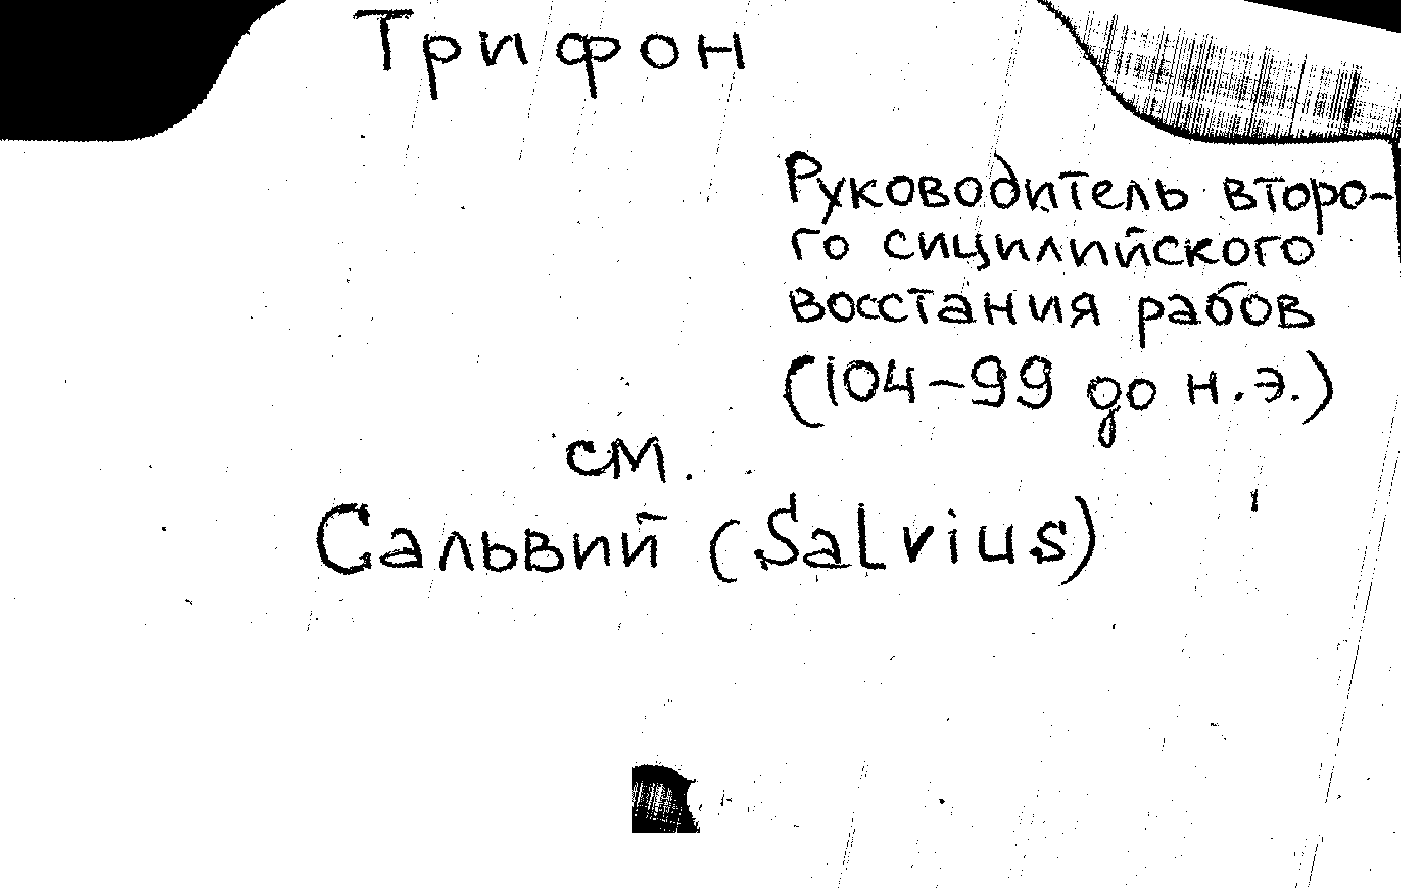 Трифон
Руководитель второ-
го сицилийского
восстания рабов
(104-99 до н.э.)
см.
Сальвий (Salvius)